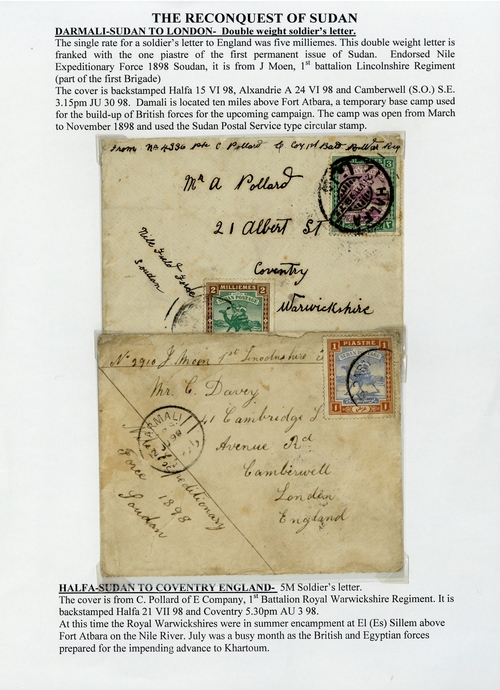 THE RECONQUEST OF SUDAN
DARMALI-SUDAN TO LONDON- Double weight soldier's letter.
The single rate for a soldier's letter to England was five milliemes. This double weight letter is
franked with the one piastre of the first permanent issue of Sudan. Endorsed Nile
Expeditionary Force 1898 Soudan, it is from J Moen, 1st battalion Lincolnshire Regiment
(part of the first Brigade)
The cover is backstamped Halfa 15 VI 98, Alxandrie A 24 VI 98 and Camberwell (S.O.) S.E.
3.15pm JU 30 98. Damali is located ten miles above Fort Atbara, a temporary base camp used
for the build-up of British forces for the upcoming campaign. The camp was open from March
to November 1898 and used the Sudan Postal Service type circular stamp.
From No 4336 Pte C Pollard E Coy 1st Batt
Mr A Pollard
21 Albert St
Coventry
Warwickshire
Nile Field Force
Soudan
HALFA
3
2 MILLIEMES 2
SUDAN POSTAGE
1 PIASTRE 1
1 1
No 2910 J Moen 1st Lincolnshire
Mr. C. Davey
41 Cambridge
Avenue Rd
Camberwell
London
England
DARMALI
98
Nile Expeditionary
Force 1898
Soudan
HALFA-SUDAN TO COVENTRY ENGLAND- 5M Soldier's letter.
The cover is from C. Pollard of E Company, 1st Battalion Royal Warwickshire Regiment. It is
backstamped Halfa 21 VII 98 and Coventry 5.30pm AU 3 98.
At this time the Royal Warwickshires were in summer encampment at El (Es) Sillem above
Fort Atbara on the Nile River. July was a busy month as the British and Egyptian forces
prepared for the impending advance to Khartoum.